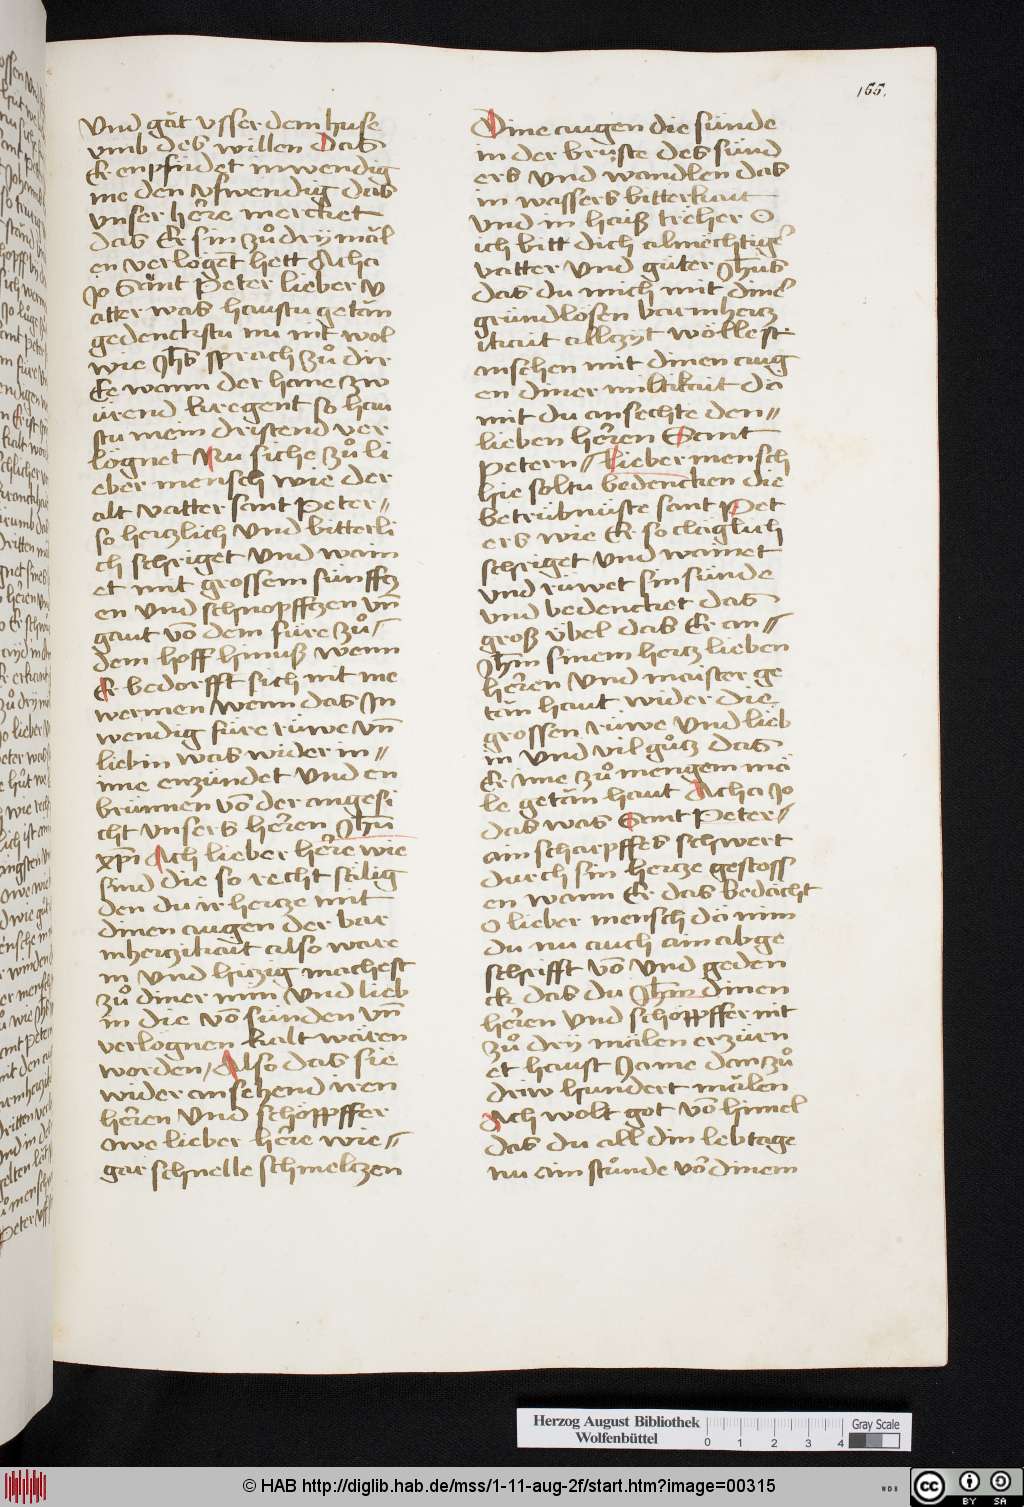 166.
vnd gāt vsser dem huse
vmb des willen das
Er enpfindet inwendig
me den vswendig das
vnser hēre mercket
das Er sin zuͦ dry māl
en verlögēt hett Acha
jo Sant Peter lieber v
atter was haustu getān
gedenckstu nu nit wol
wie Jh̄s sprach zuͦ dir
Ee wann der hane zw
ürend kregent so hau
stu mein dristend ver
lögnet Nu siche zuͦ li
eber mensch wie der
alt vatter sant Peter
so herczlich vnd bitterli
ch schriget vnd wain
et mit grossem sünffcz
en vnd schnopffczen vn̄
gaut vō dem füre zuͦ
dem hoff hinuß wenn
Er bedorfft sich nit me
wermen wann das In
wendig füre rüwe vn̄
liebin was wider in
ime enzündet vnd en
brünnen vō der angesi
cht vnsers hēren Jh̄u
xp̄i Ach lieber hēre wie
sind die so recht sälig
den du ir hercze mit
dinen augen der bar
mhercikaut also ware
m vnd hiczig machest
zuͦ diner min vnd lieb
in die vō sünden vn̄
verlögnen kalt wären
worden, Also das sie
wider ansehend iren
hēren vnd schöppffer
Owe lieber hēre wie
gar schnelle schmelczen
Dine augen die sünde
in der brüste des sünd
ers vnd wandlen das
in wassers bitterkait
vnd in haiß treher O
ich bitt dich almechtiger
vatter vnd guͤter Jh̄us
das du mich mit diner
gründlosen barmhercz
ikait allczyt wöllest
ansehen mit dinen aug
en diner miltikait dā
mit du ansechte den
lieben hēren Sant
Petern Lieber mensch
hie soltu bedencken die
betrübnüste sant Pet
ers wie Er so cläglich
schriget vnd wainet
vnd rüwet sin sünde
vnd bedencket das
groß übel das Er an
Jh̄m sinem hercz lieben
hēren vnd maister ge
tān haut wider die
grossen rüwe vnd lieb
in vnd vil guͦcz das
Er ime zuͦ mengem mā
le getān haut Acha jo
das was Sant Peter
ain scharpffes schwert
durch sin hercze gestoss
en wann Er das bedācht
O lieber mensch dā nim
du nu auch ain abge
schrifft vō vnd geden
ck das du Jh̄m dinen
hēren vnd schöppffer nit
zuͦ dry mālen erzürn
et haust Ja me dan zuͦ
driw hundert mālen
Ach wolt got vō himel
das du all din lebtage
nu ain stuͦnde vor dinem
Herzog August Bibliothek
Wolfenbüttel
0 1 2 3 4
Gray Scale
© HAB http://diglib.hab.de/mss/1-11-aug-2f/start.htm?image=00315
WDB
CC BY SA